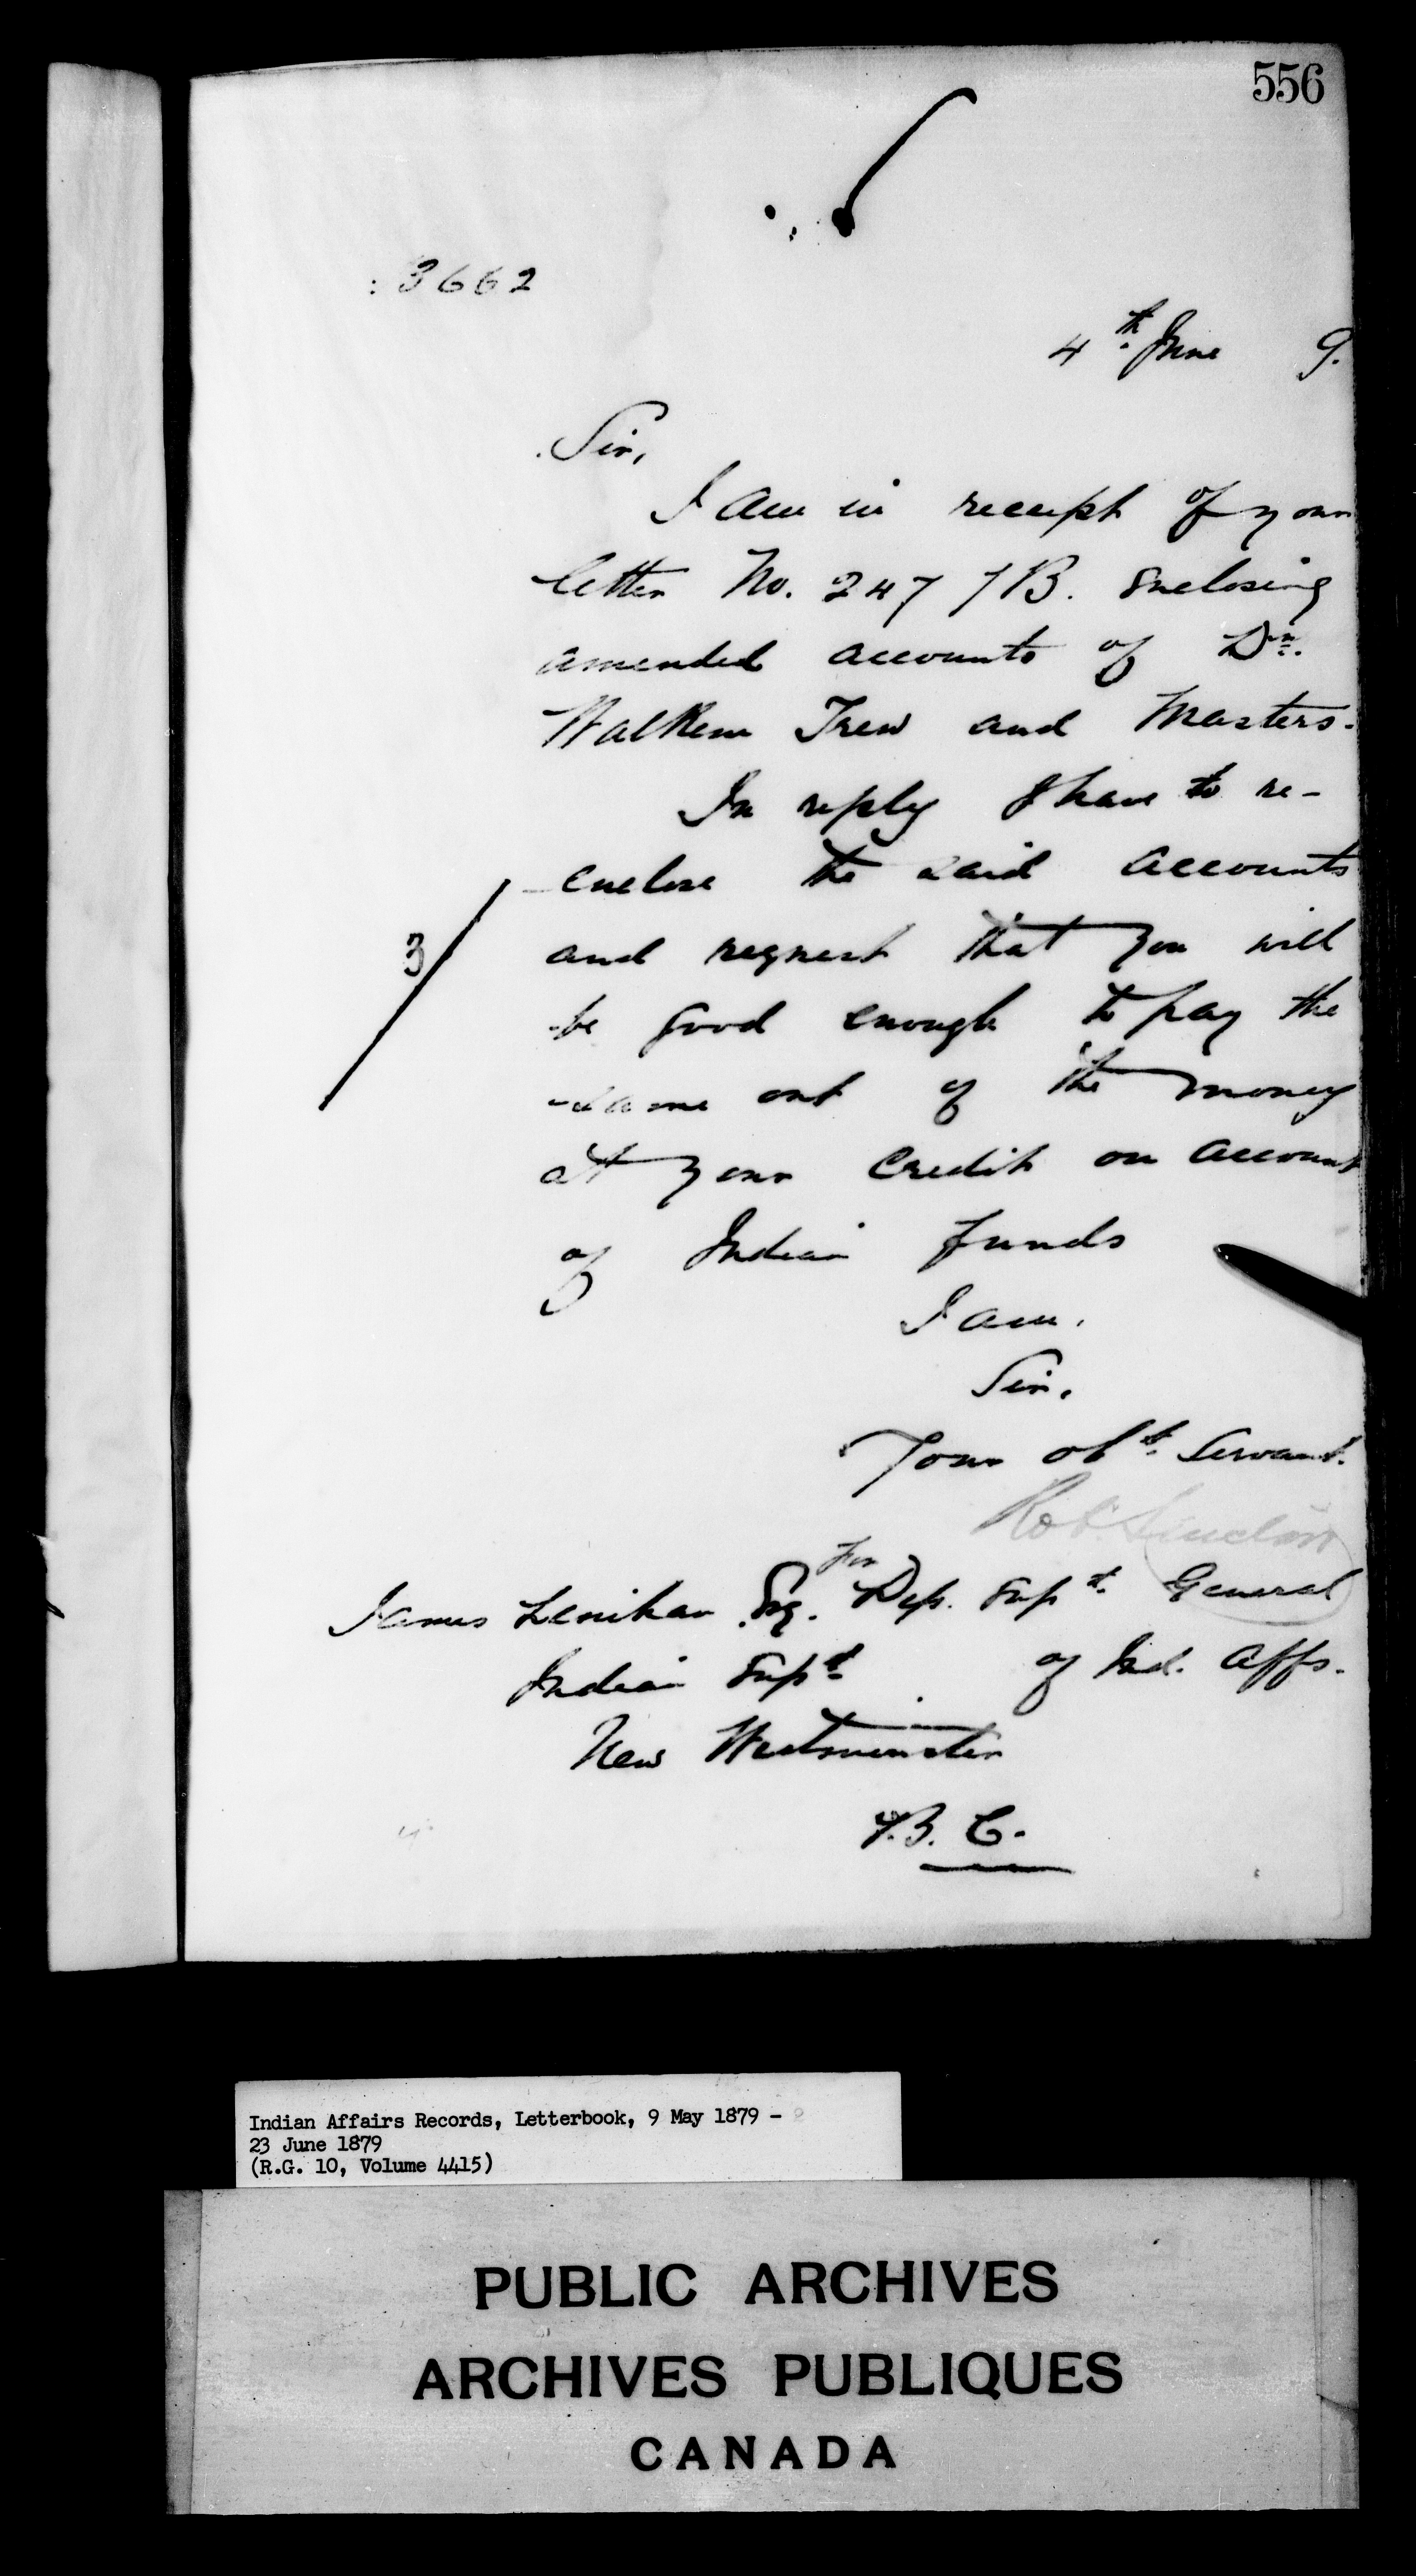 556
3662
4th June 9.
Sir,
I am in receipt of your
letter No. 247 /B. enclosing
amended accounts of Drs.
Walkem Trew and Masters.
In reply I have to re-
enclose the said accounts
3/
and request that you will
be good enough to pay the
same out of the money
at your credit on account
of Indian funds
I am,
Sir,
Your obt. Servant.
Robt. Sinclair
for
James Lenihan Esq. Dep. Supt. General
Indian Supt. of Ind. Affs.
New Westminster
B. C.
Indian Affairs Records, Letterbook, 9 May 1879 -
23 June 1879
(R.G. 10, Volume 4415)
PUBLIC ARCHIVES
ARCHIVES PUBLIQUES
CANADA